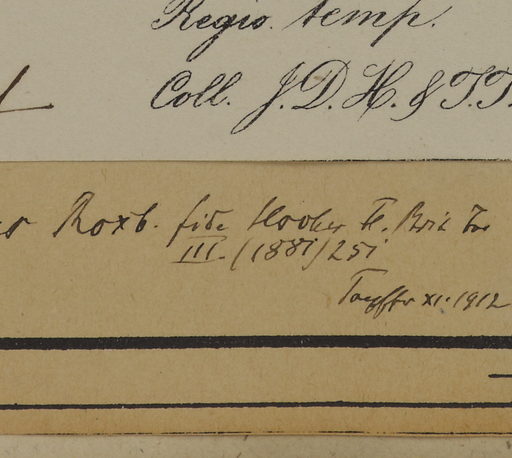 Regio. temp.
Coll. J.D.H. & T.T.
Roxb. fide Hooker Fl. Brit
III. (1881) 251
XI. 1912